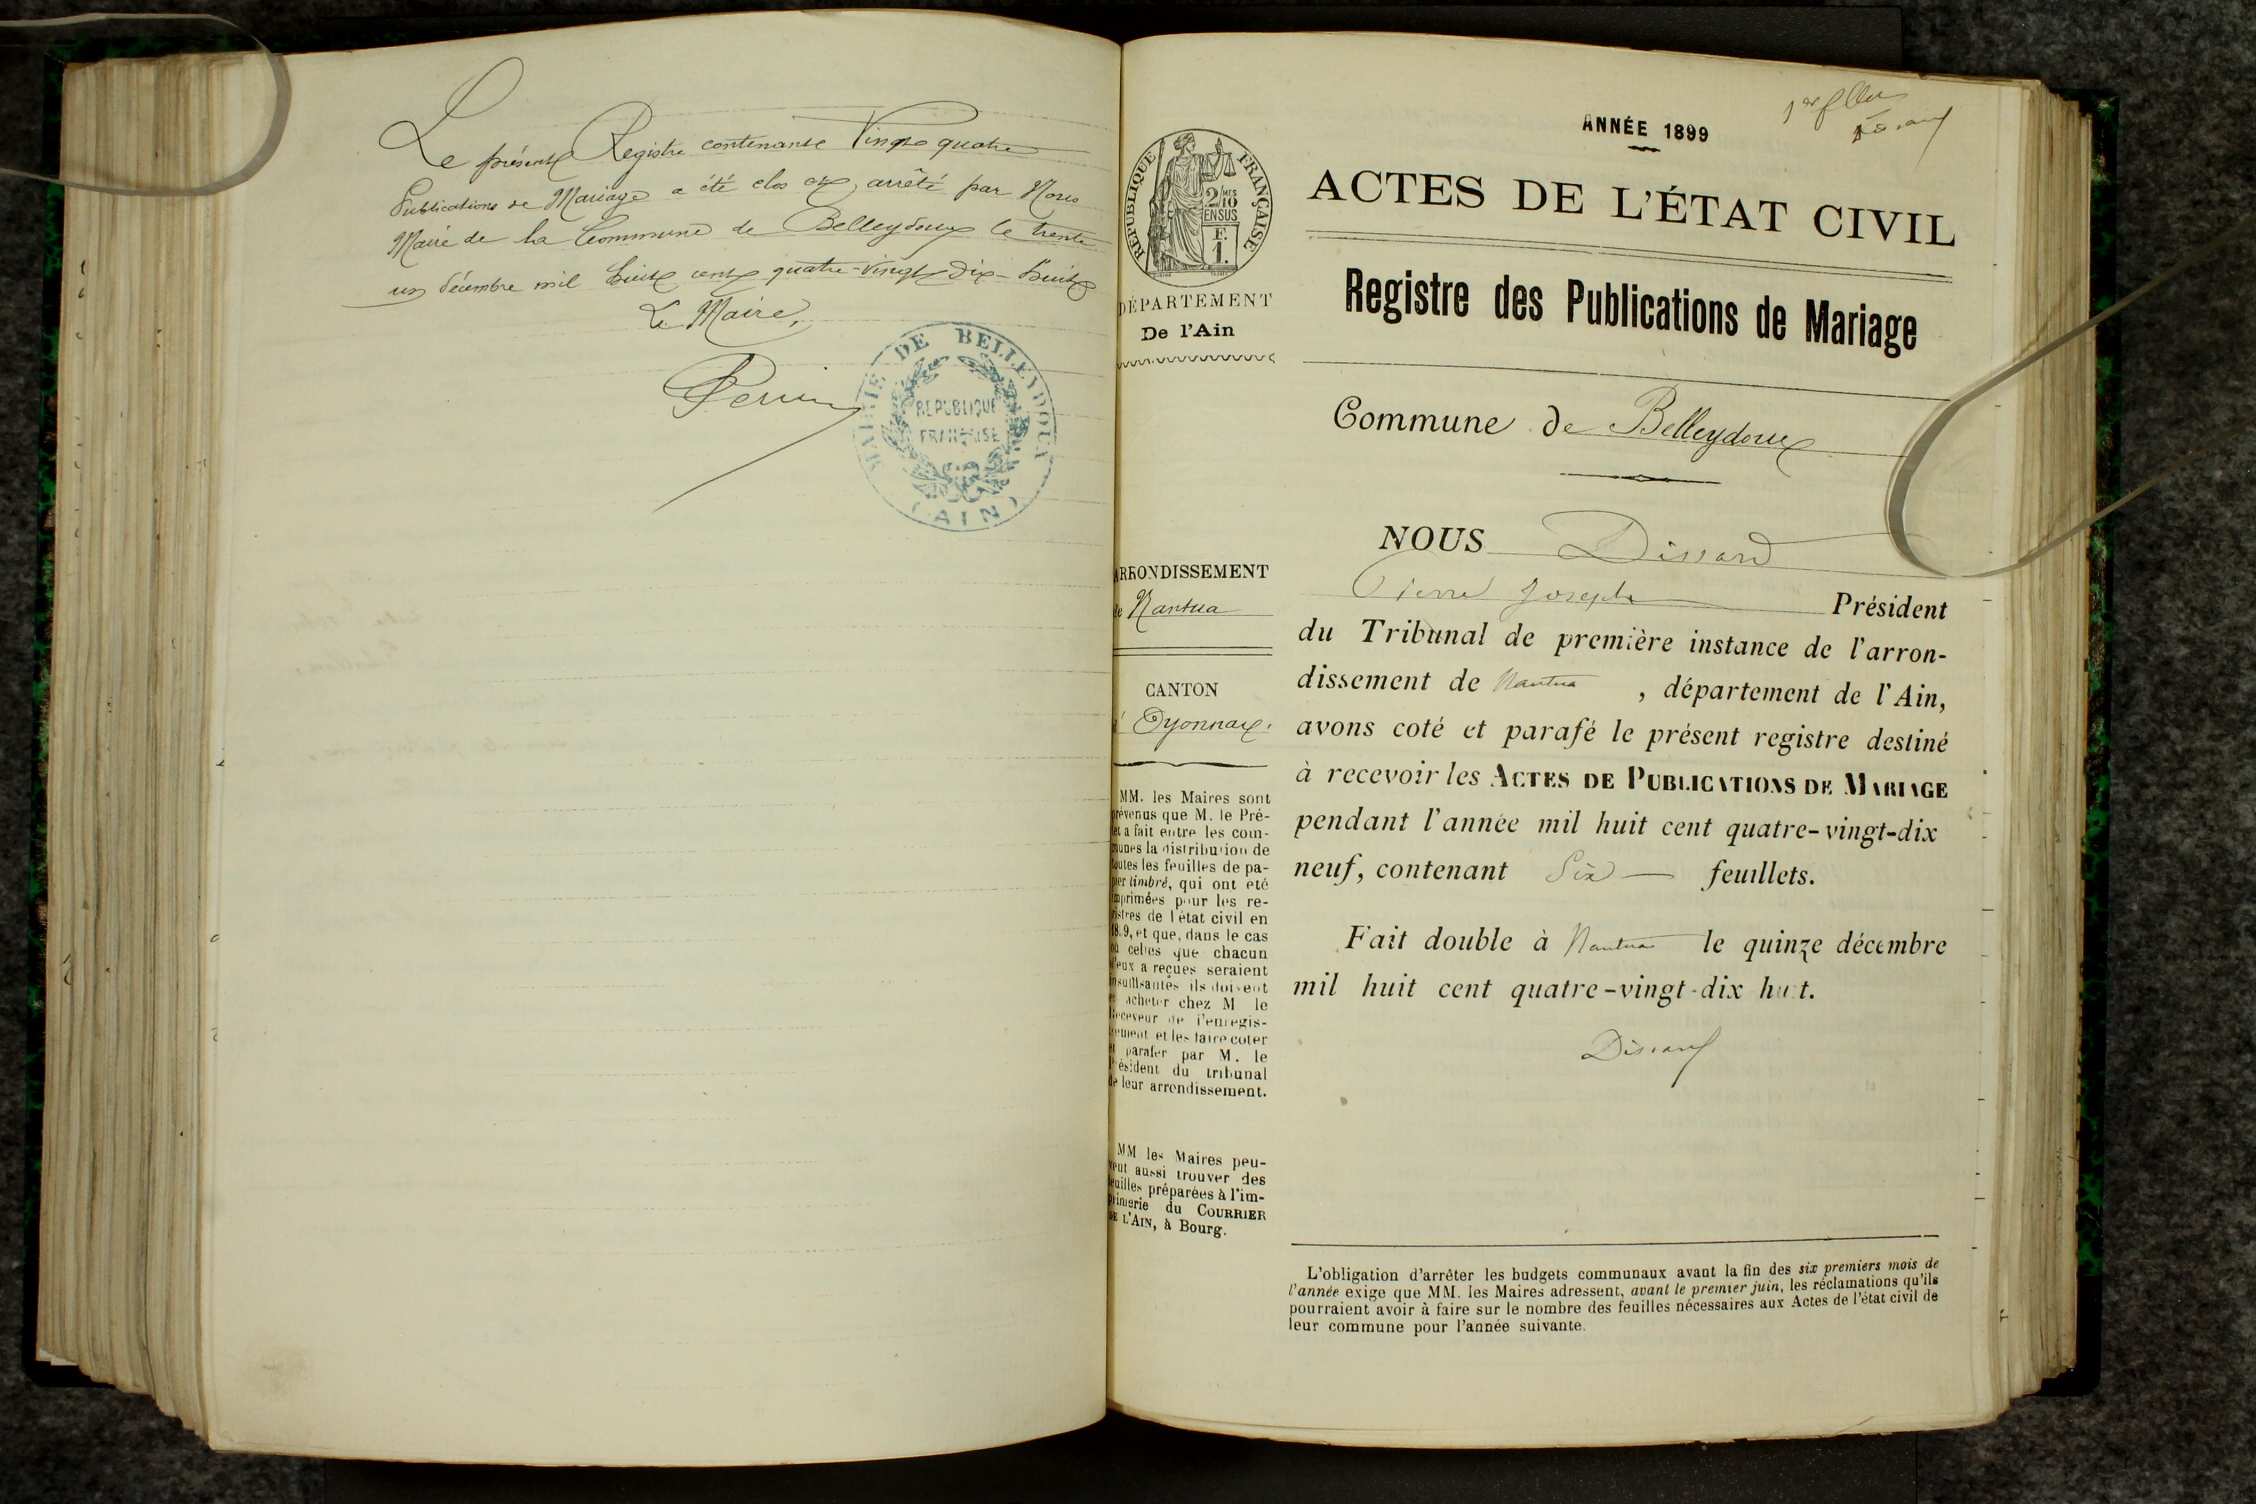 Le présent Registre contenant Vingt quatre
Publications de Mariage a été clos et arrêté par Nous
Maire de la Commune de Belleydoux le trente
un décembre mil huit cent quatre-vingt dix-huit
Le Maire,
MAIRIE DE BELLEYDOUX
REPUBLIQUE
FRANÇAISE
(AIN)
ANNÉE 1899
RÉPUBLIQUE FRANÇAISE
2/10
EN SUS
F.
1.
DÉPARTEMENT
De l'Ain
ACTES DE L'ÉTAT CIVIL
Registre des Publications de Mariage
Commune de Belleydoux
ARRONDISSEMENT
de Nantua
CANTON
d'Oyonnax.
MM. les Maires sont
prévenus que M. le Pré-
fet a fait entre les com-
munes la distribution de
toutes les feuilles de pa-
pier timbré, qui ont été
imprimées pour les re-
gistres de l'état civil en
1899, et que, dans le cas
où celles que chacun
d'eux a reçues seraient
insuffisantes ils doivent
en acheter chez M le
Receveur de l'enregis-
trement et les faire coter
et parafer par M. le
Président du tribunal
de leur arrondissement.
MM les Maires peu-
vent aussi trouver des
feuilles préparées à l'im-
primerie du COURRIER
DE L'AIN, à Bourg.
NOUS Dissard
Pierre Joseph Président
du Tribunal de première instance de l'arron-
dissement de Nantua , département de l'Ain,
avons coté et parafé le présent registre destiné
à recevoir les ACTES DE PUBLICATIONS DE MARIAGE
pendant l'année mil huit cent quatre-vingt-dix
neuf, contenant Six feuillets.
Fait double à Nantua le quinze décembre
mil huit cent quatre-vingt-dix huit.
Dissard
L'obligation d'arrêter les budgets communaux avant la fin des six premiers mois de
l'année exige que MM. les Maires adressent, avant le premier juin, les réclamations qu'ils
pourraient avoir à faire sur le nombre des feuilles nécessaires aux Actes de l'état civil de
leur commune pour l'année suivante.